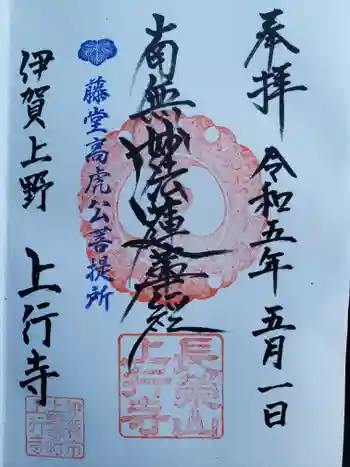 奉拝
令和五年 五月一日
南無妙法蓮華経
長栄山
上行寺
藤堂高虎公菩提所
伊賀上野 上行寺
上行寺